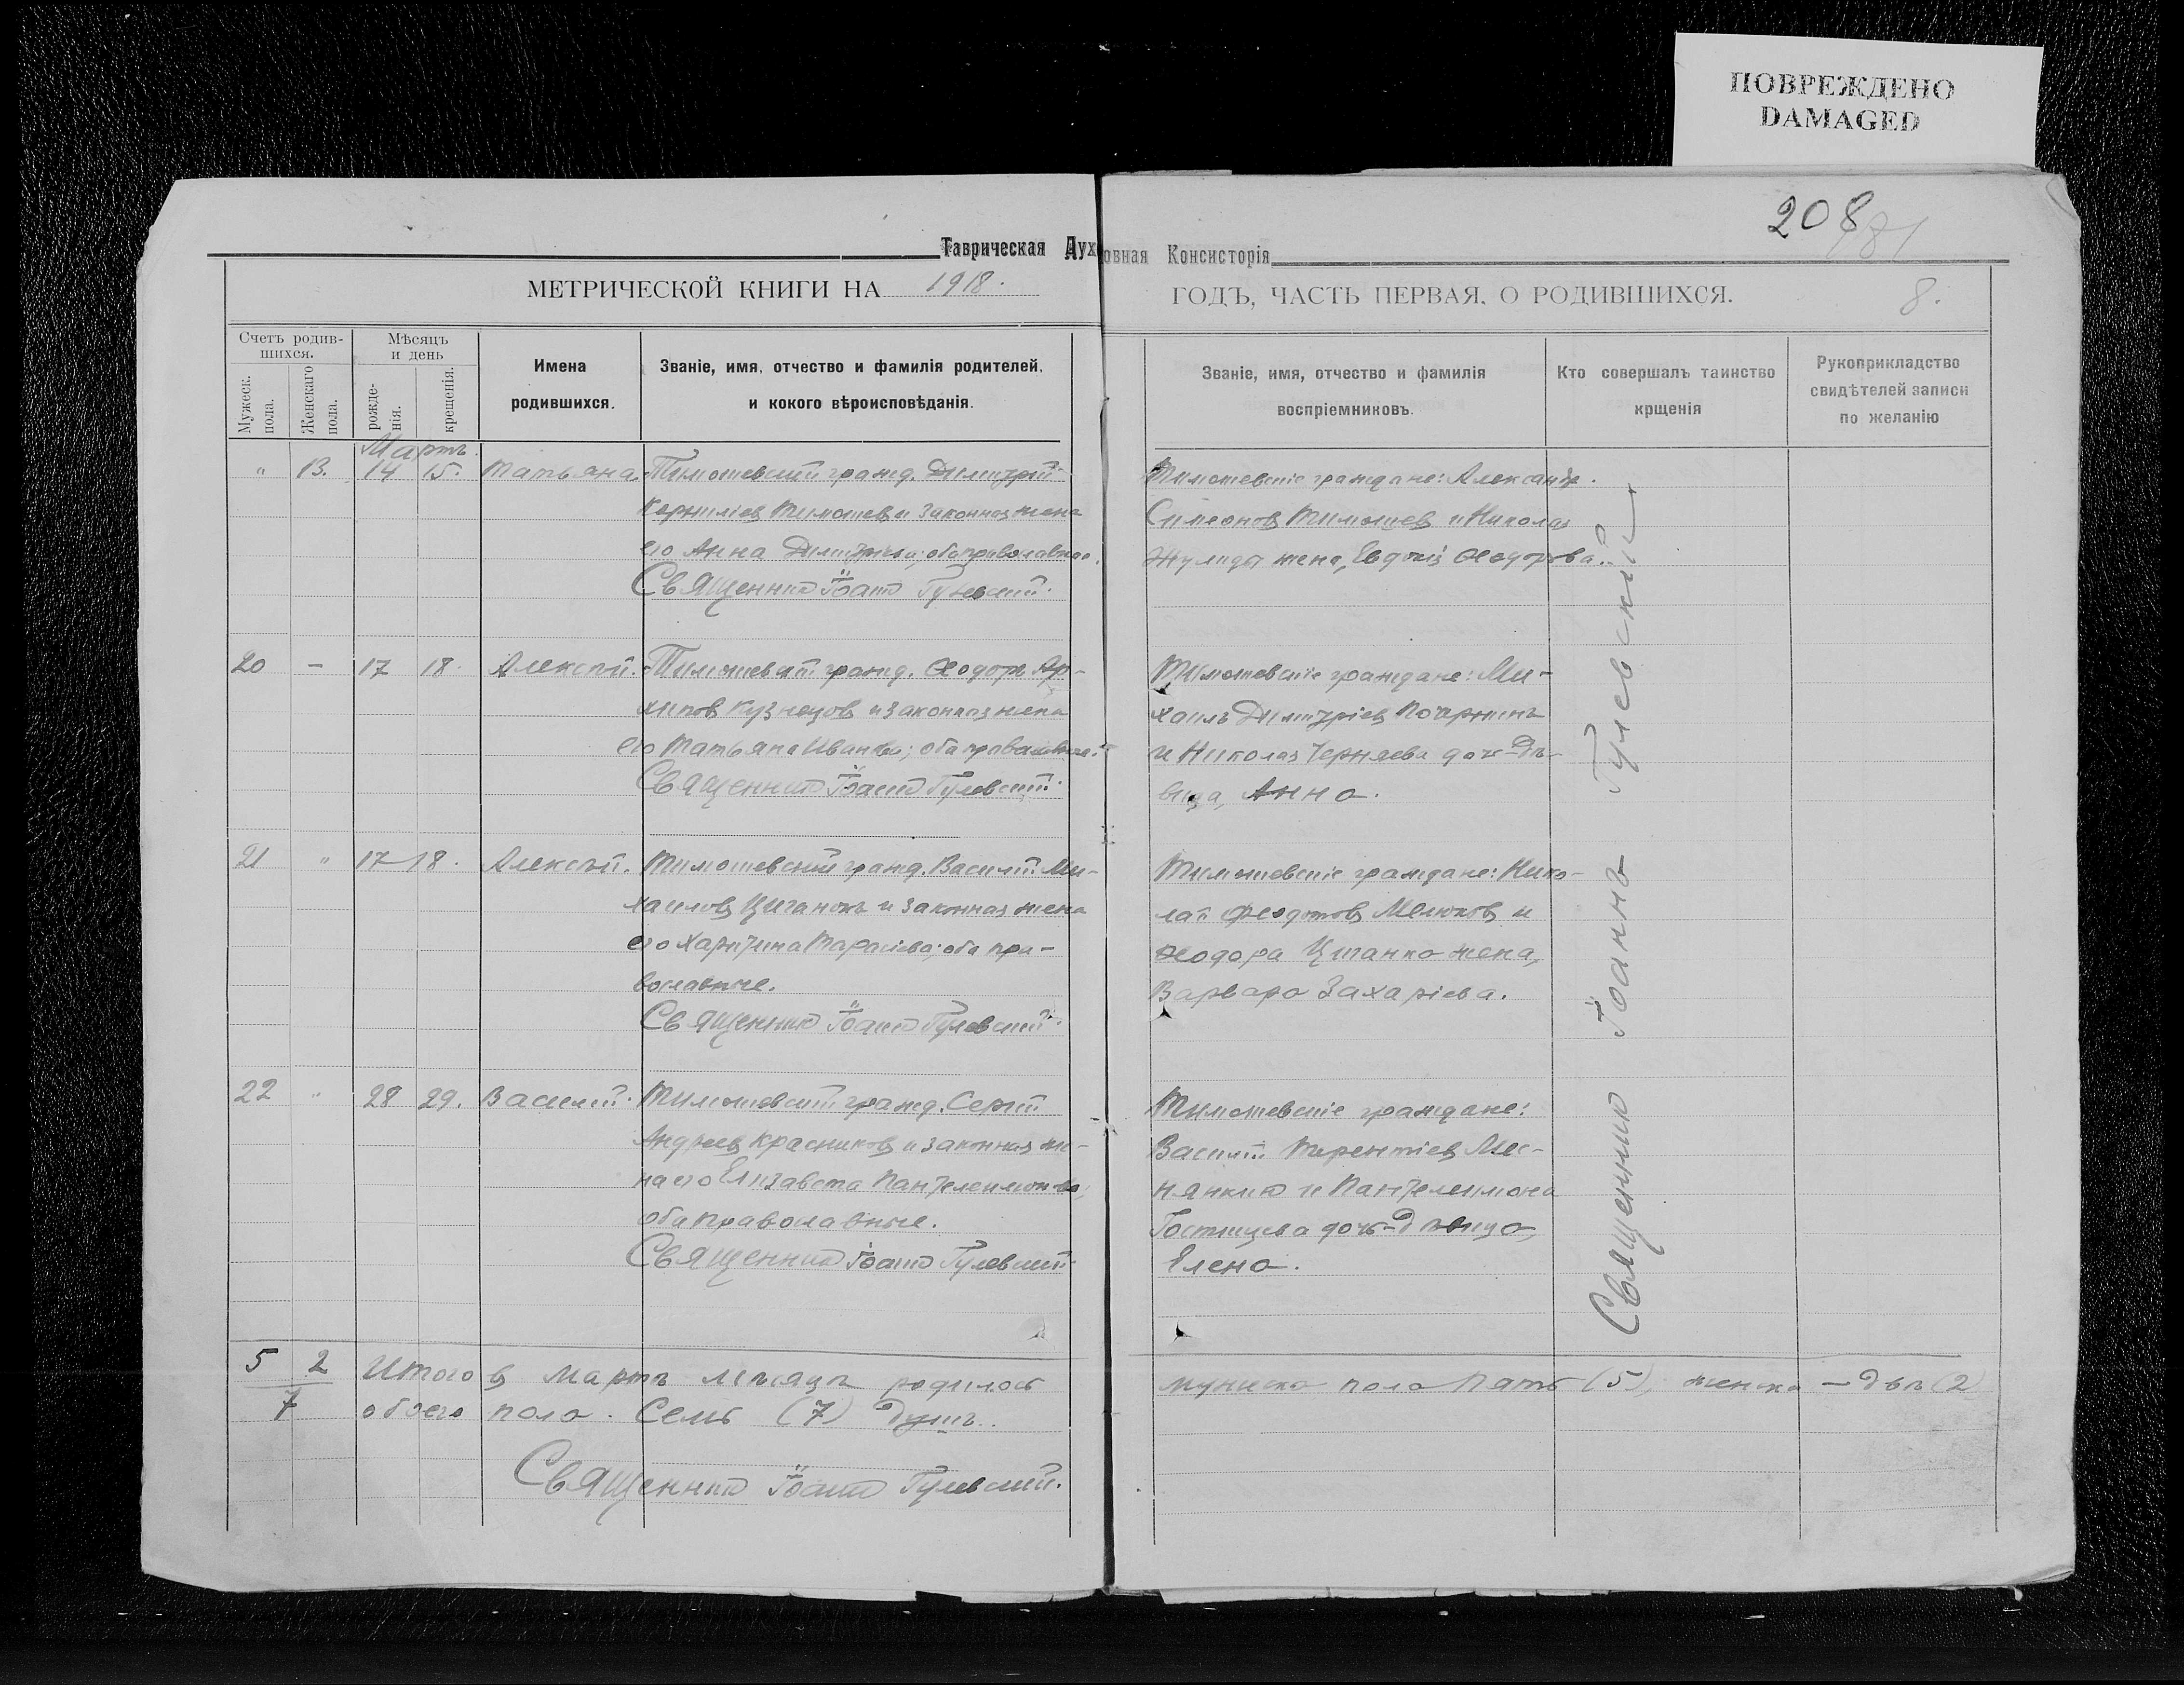 ПОВРЕЖДЕНО
DAMAGED
208
181
Таврическая Духовная Консисторія
МЕТРИЧЕСКОЙ КНИГИ НА 1918.
ГОДЪ, ЧАСТЬ ПЕРВАЯ, О РОДИВШИХСЯ.
8.
Счетъ родив-
шихся.
Мужеск.
пола.
Женскаго
пола.
Мѣсяцъ
и день
рожде-
нія.
крещенія.
Имена
родившихся.
Званіе, имя, отчество и фамилія родителей,
и кокого вѣроисповѣданія.
Званіе, имя, отчество и фамилія
воспріемниковъ.
Кто совершалъ таинство
крщенія
Рукоприкладство
свидѣтелей записи
по желанію
Мартъ.
" 13. 14 15. Татьяна. Тимошевскій гражд. Димитрій
Корниліев Тимошев и законная жена
его Анна Димитріева; оба православные.
Священник Іоанн Гулевский.
Тимошевскіе граждане: Александр.
Симеонов Тимошев и Николая
жена, Евдокія Феодорова.
20 — 17 18. Алексѣй. Тимошевскій гражд. Феодоръ Ар-
хипов Кузнецов и законная жена
его Татьяна Иванова; оба православные.
Священник Іоанн Гулевский.
Тимошевскіе граждане: Ми-
хаилъ Димитріев
и Николая Черняева дочь-дѣ-
вица, Анна.
21 " 17 18. Алексѣй. Тимошевский гражд. Василій Ми-
хаилов Циганокъ и законная жена
его Харитина Тарасіева; оба пра-
вославные.
Священник Іоанн Гулевский.
Тимошевскіе граждане: Нико-
лай Феодотов Мелюков и
Феодора Цыганко жена,
Варвара Захаріева.
22 " 28 29. Василий. Тимошевский гражд. Сергій
Андреев Красников и законная же-
на его Елизавета Пантелеимонова;
оба православные.
Священник Іоанн Гулевский.
Тимошевскіе граждане:
Василій Терентіев Мес-
нянкин и Пантелеимона
Гостищева дочь-дѣвица
Елена.
Священникъ Іоаннъ Гулевский.
5 2
7
Итого в Мартѣ мѣсяцѣ родилось
мужеска пола пять (5), женска — двѣ (2)
обоего пола. Семь (7) душъ.
Священник Іоанн Гулевский.